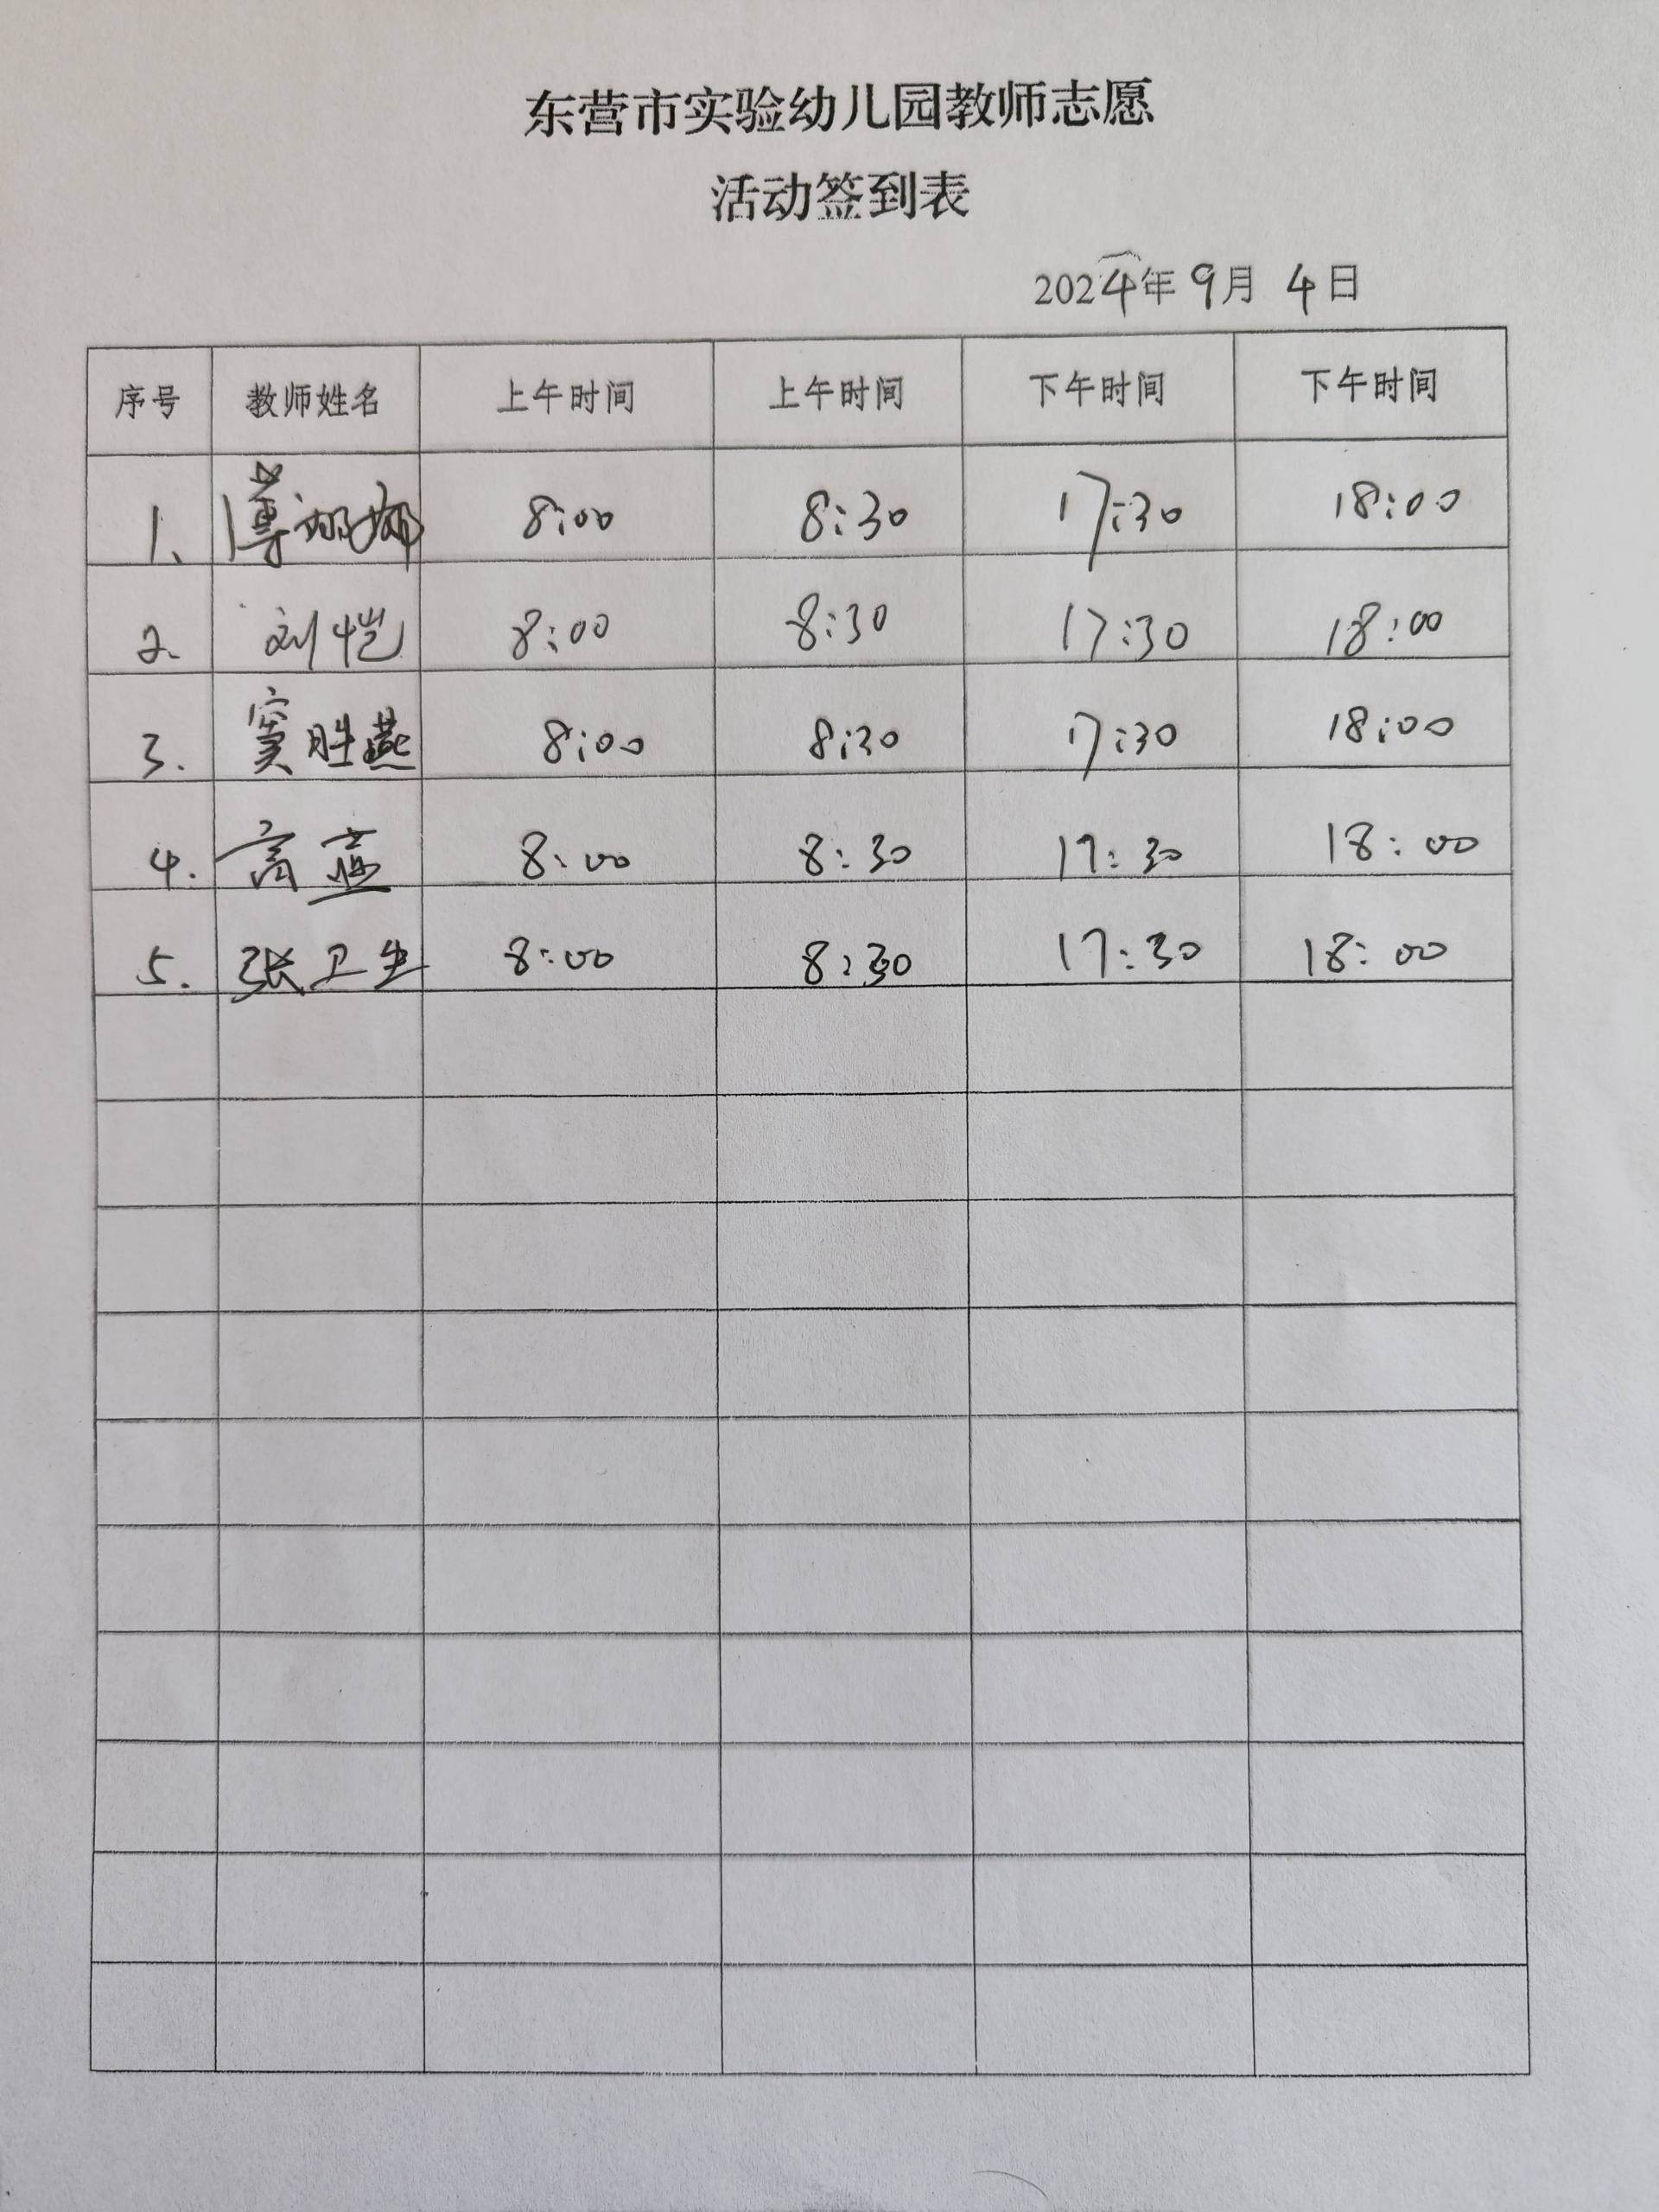 东营市实验幼儿园教师志愿
活动签到表
2024年 9月 4日
序号 教师姓名 上午时间 上午时间 下午时间 下午时间
1、 8:00 8:30 17:30 18:00
2. 刘恺 8:00 8:30 17:30 18:00
3. 窦胜燕 8:00 8:30 17:30 18:00
4. 高燕 8:00 8:30 17:30 18:00
5. 张卫生 8:00 8:30 17:30 18:00